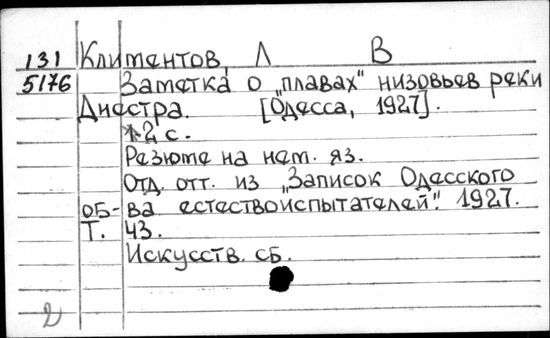 131 Климентов, Л В
5176 Заметка о „плавах" низовьев реки
Днестра. [Одесса, 1927].
12 с.
Резюме на нем. яз.
Отд. отт. из „Записок Одесского
об-ва естествоиспытателей". 1927.
Т. 43.
Искусств. сб.
2